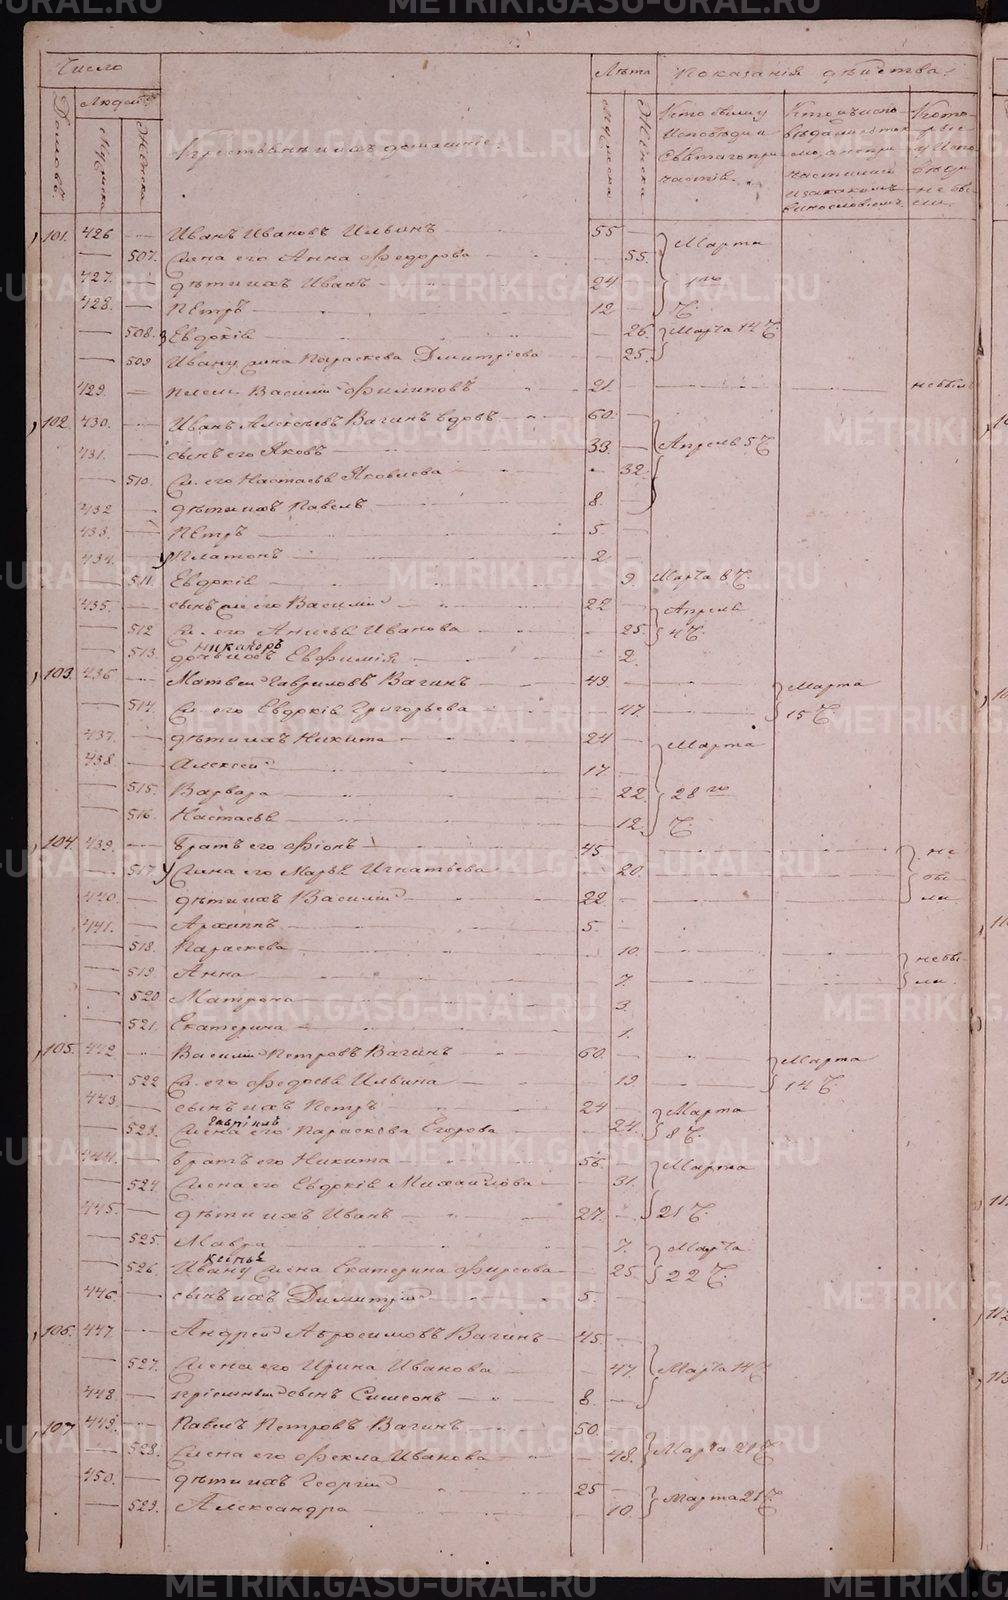 Число
Людей
Домовъ.
Мужска
Женска
Крестьяне и ихъ домашніе.
Лѣта
Мужска
Женска
Показанія дѣйства.
Кто были у исповѣди и святаго причастія.
не были.
101. 426 — Иванъ Ивановъ Ильинъ — 55 — Марта
— 507. Жена его Анна Федорова — 55. 1го
427. — дѣти ихъ Иванъ — 24
428. — Петръ — 12 — Ч.
— 508. Евдокія — 26. Марта 14 Ч.
— 509 Ивану жена Параскева Дмитріева — 25.
429. — Василій Филиповъ — 21. — не былъ
102. 430. — Иванъ Алексѣевъ Вагинъ вдовъ — 60. —
431. — сынъ его Яковъ — 33. — Апрѣля 5 Ч.
— 510. Ж. его Настасья Яковлева — 32.
432 — дѣти ихъ Павелъ — 8. —
433. — Петръ — 5. —
434. — Платонъ — 2. —
— 511. Евдокія — 9. Марта 8 Ч.
435. — сынъ его Василій — 22 — Апрѣля
— 512 Ж. его Анисья Иванова — 25. 4 Ч.
Никаноръ
— 513. дочь ихъ Евфимія — 2.
103. 436 — Матвей Гавриловъ Вагинъ — 49. — Марта
— 514. Ж. его Евдокія Григорьева — 47. — 15 Ч.
437. — дѣти ихъ Никита — 24 — Марта
438. — Алексей — 17. —
— 515. Варвара — 22. 28го
— 516. Настасья — 12. Ч.
104 439. — братъ его Фіонъ — 45. — не
— 517. Жена его Марья Игнатьева — 20. — бы
440. — дѣти ихъ Василій — 22 — ли.
441. — Архипъ — 5. —
— 518. Параскева — 10. — не бы
— 519 Анна — 7. — ли.
— 520. Матрона — 3.
— 521. Екатерина — 1.
105. 442 — Василій Петровъ Вагинъ — 60. — Марта
— 522 Ж. его Федосья Ильина — 19. — 14 Ч.
443. — сынъ ихъ Петръ — 24 — Марта
Гавріилъ
— 523. Жена его Параскева Егорова — 24. 8 Ч.
444. — братъ его Никита — 56. — Марта
— 524. Жена его Евдокія Михайлова — 31.
445. — дѣти ихъ Иванъ — 27. — 21 Ч.
— 525. Мавра — 7. Марта
— 526. Ивану жена Екатерина Фирсова — 25. 22 Ч.
446. — сынъ ихъ Димитрій — 5 —
106. 447 — Андрей Абросимовъ Вагинъ — 45. —
— 527. Жена его Ирина Иванова — 47. Марта 14 Ч.
448 — пріемный сынъ Симеонъ — 8. —
107 449. — Павелъ Петровъ Вагинъ — 50.
— 528. Жена его Фекла Иванова — 48. Марта 21 Ч.
450. — дѣти ихъ Георгій — 25 —
— 529. Александра — 10. Марта 21 Ч.
METRIKI.GASO-URAL.RU